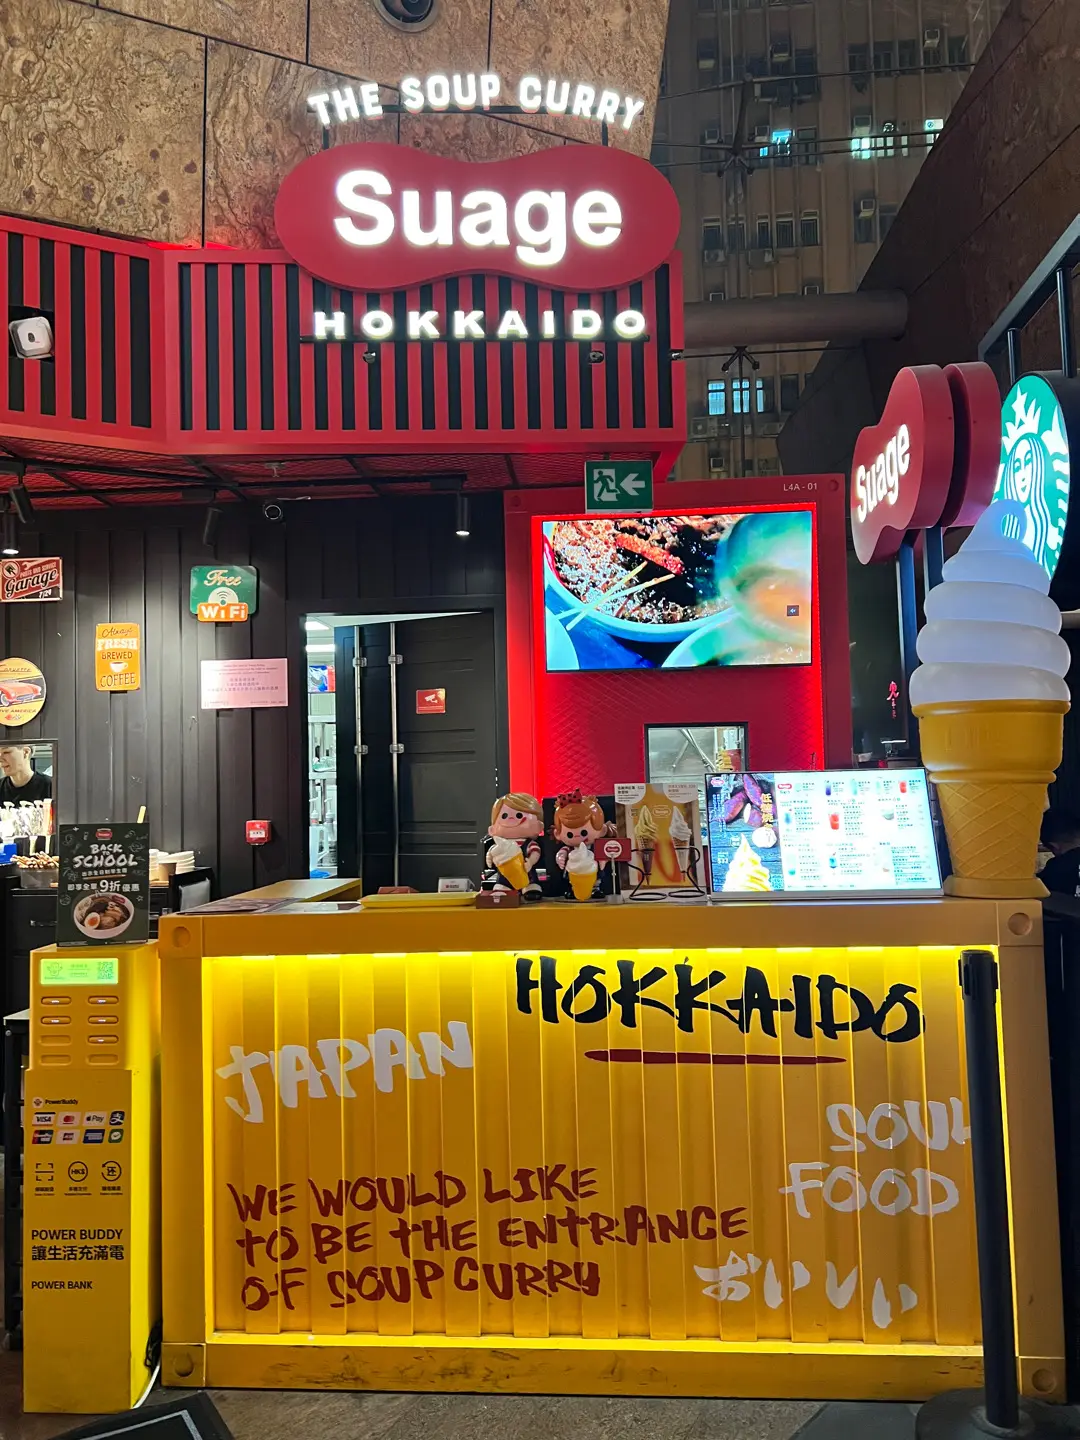 THE SOUP CURRY
Suage
HOKKAIDO
L4A - 01
Suage
Garage
Free
WiFi
Always
FRESH
BREWED
COFFEE
BACK
to
SCHOOL
即享全單9折優惠
HOKKAIDO
JAPAN
SOUL
FOOD
WE WOULD LIKE
TO BE THE ENTRANCE
OF SOUP CURRY
おいしい
PowerBuddy
VISA
Pay
HK$
POWER BUDDY
讓生活充滿電
POWER BANK